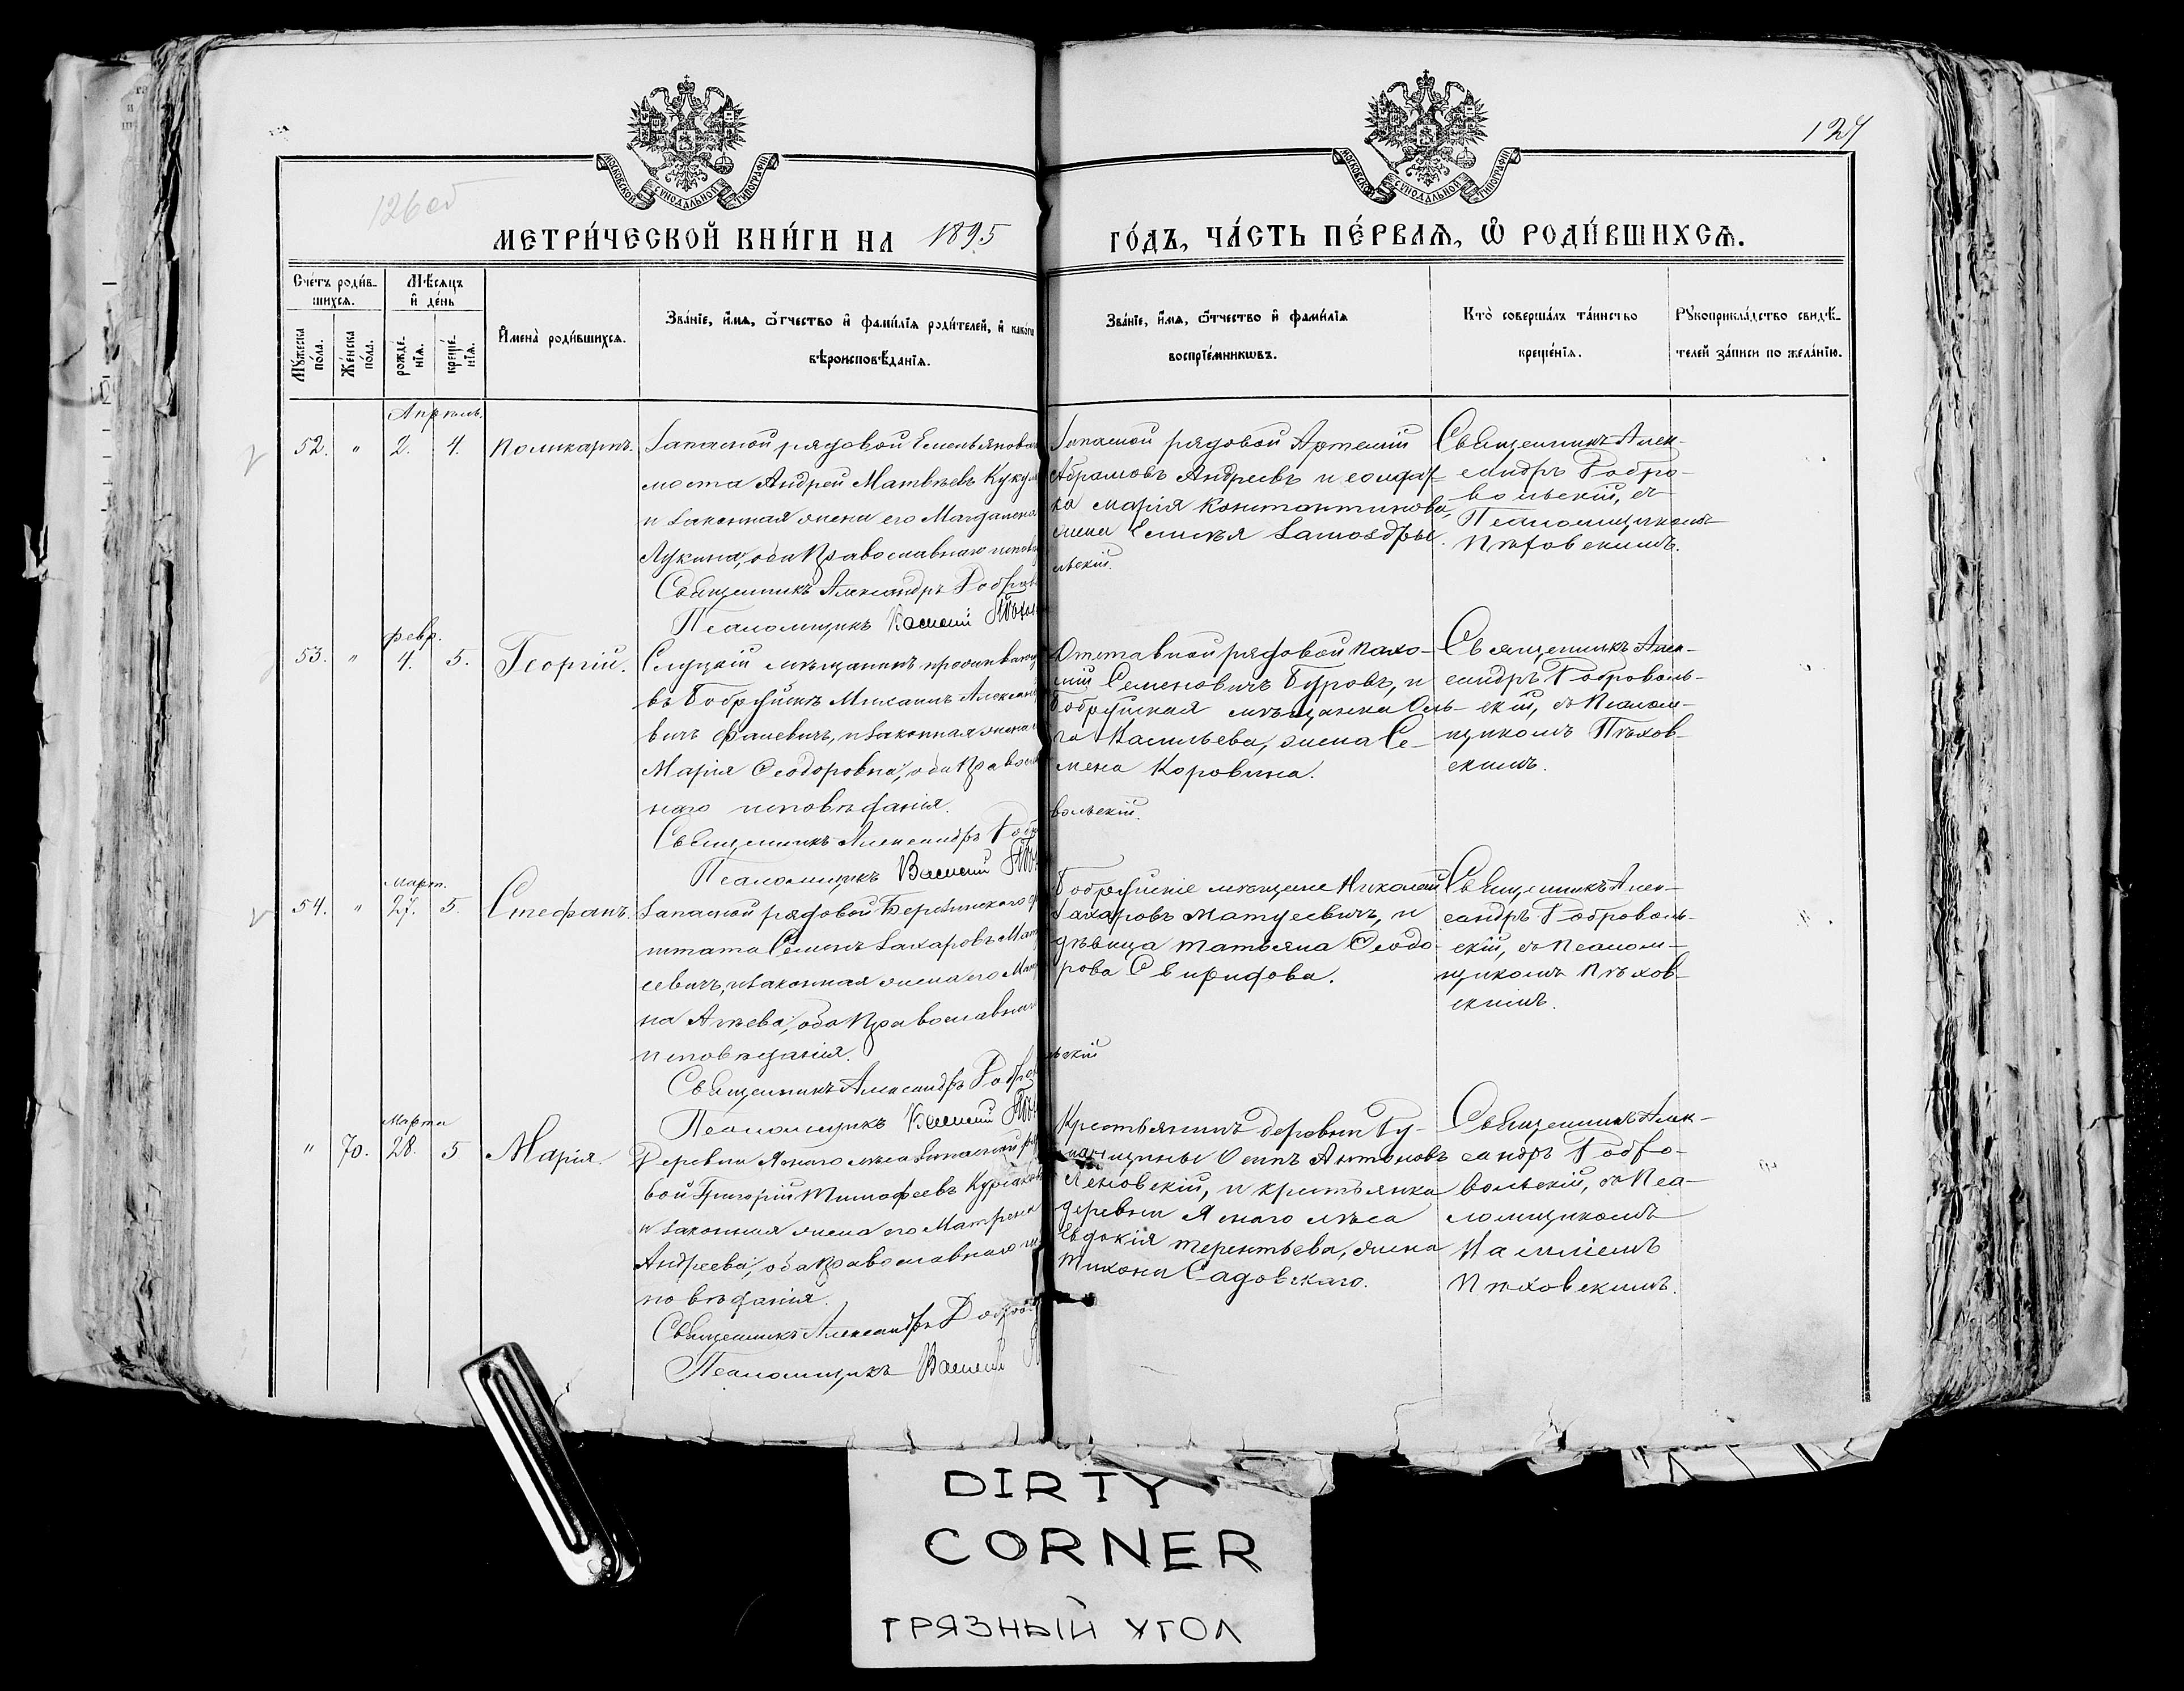 127
126 об
МОСКОВСКОЙ СѴНОДАЛЬНОЙ ТИПОГРАФІИ
МОСКОВСКОЙ СѴНОДАЛЬНОЙ ТИПОГРАФІИ
МЕТРИ́ЧЕСКОЙ КНИ́ГИ НА 1895 ГО́ДЪ, ЧА́СТЬ ПЕ́РВАѦ, Ѽ РОДИ́ВШИХСѦ.
Сче́тъ роди́в-
шихсѧ.
Мѣ́сѧцъ
и҆ де́нь
Мꙋ́жеска
по́ла.
Же́нска
по́ла.
рожде́-
нїѧ.
креще́-
нїѧ.
И҆мена̀ роди́вшихсѧ.
Зва́нїе, и҆́мѧ, ѻ҆́тчество и҆ фами́лїѧ роди́телей, и҆ како́гѡ
вѣроисповѣ́данїѧ.
Зва́нїе, и҆́мѧ, ѻ҆́тчество и҆ фами́лїѧ
воспрїе́мникѡвъ.
Кто̀ соверша́лъ та́инство
креще́нїѧ.
Рꙋкоприкла́дство свидѣ́-
телей за́писи по жела́нїю.
Апрель.
52. " 2. 4. Поликарпъ.
Запасной рядовой Емельянова
моста Андрей Матвѣевъ Кукул
и законная жена его Магдалена
Лукина, оба Православнаго исповѣ
Священникъ Александръ Добров
Псаломщикъ Василій Пѣхов
Запасной рядовой Артемій
Абрамовъ Андреевъ и солдат-
ка Марія Константинова,
жена Елисѣя
льскій.
Священникъ Алек-
сандръ Добро-
вольскій, съ
Псаломщикомъ
Пѣховскимъ.
февр.
53. " 4. 5. Георгій.
Слуцкій мѣщанинъ проживающ
въ Бобруйскѣ Михаилъ Александ
вичъ Фалевичъ, и законная жена
Марія Ѳеодоровна, оба Правосла
наго исповѣданія.
Священникъ Александръ Добро
Псаломщикъ Василій Пѣх
Отставной рядовой Пахо-
мій Семеновичъ Буровъ, и
Бобруйская мѣщанка Оль-
га Васильева, жена Се-
мена Коровина.
вольскій.
Священникъ Алек-
сандръ Доброволь-
скій, съ Псалом-
щикомъ Пѣхов-
скимъ.
Март.
54. " 27. 5. Стефанъ.
Запасной рядовой Березинскаго ф
штата Семенъ Захаровъ Мат
севичъ, и законная жена его Мат
на Агѣева, оба Православнаго
исповѣданія.
Священникъ Александръ Доброво
Псаломщикъ Василій Пѣх
Бобруйскіе мѣщане Николай
Захаровъ Мацуевичъ, и
дѣвица Татьяна Ѳеодо-
рова Свиридова.
льскій
Священникъ Алек-
сандръ Доброволь-
скій, съ Псалом-
щикомъ Пѣхов-
скимъ.
Марта
" 70. 28. 5 Марія.
Деревни Яснаго лѣса Запасной ря
вой Григорій Тимофеевъ
и законная жена его Матрена
Андреева, оба Православнаго ис
повѣданія.
Священникъ Александръ Доброво
Псаломщикъ Василій П
Крестьянинъ деревни
Осипъ Антоновъ
и крестьянка
деревни Яснаго лѣса
Евдокія Терентьева, жена
Тихона Садовскаго.
Священникъ Алек-
сандръ Добро-
вольскій, съ Пса-
ломщикомъ
Василіемъ
Пѣховскимъ.
DIRTY
CORNER
ГРЯЗНЫЙ УГОЛ